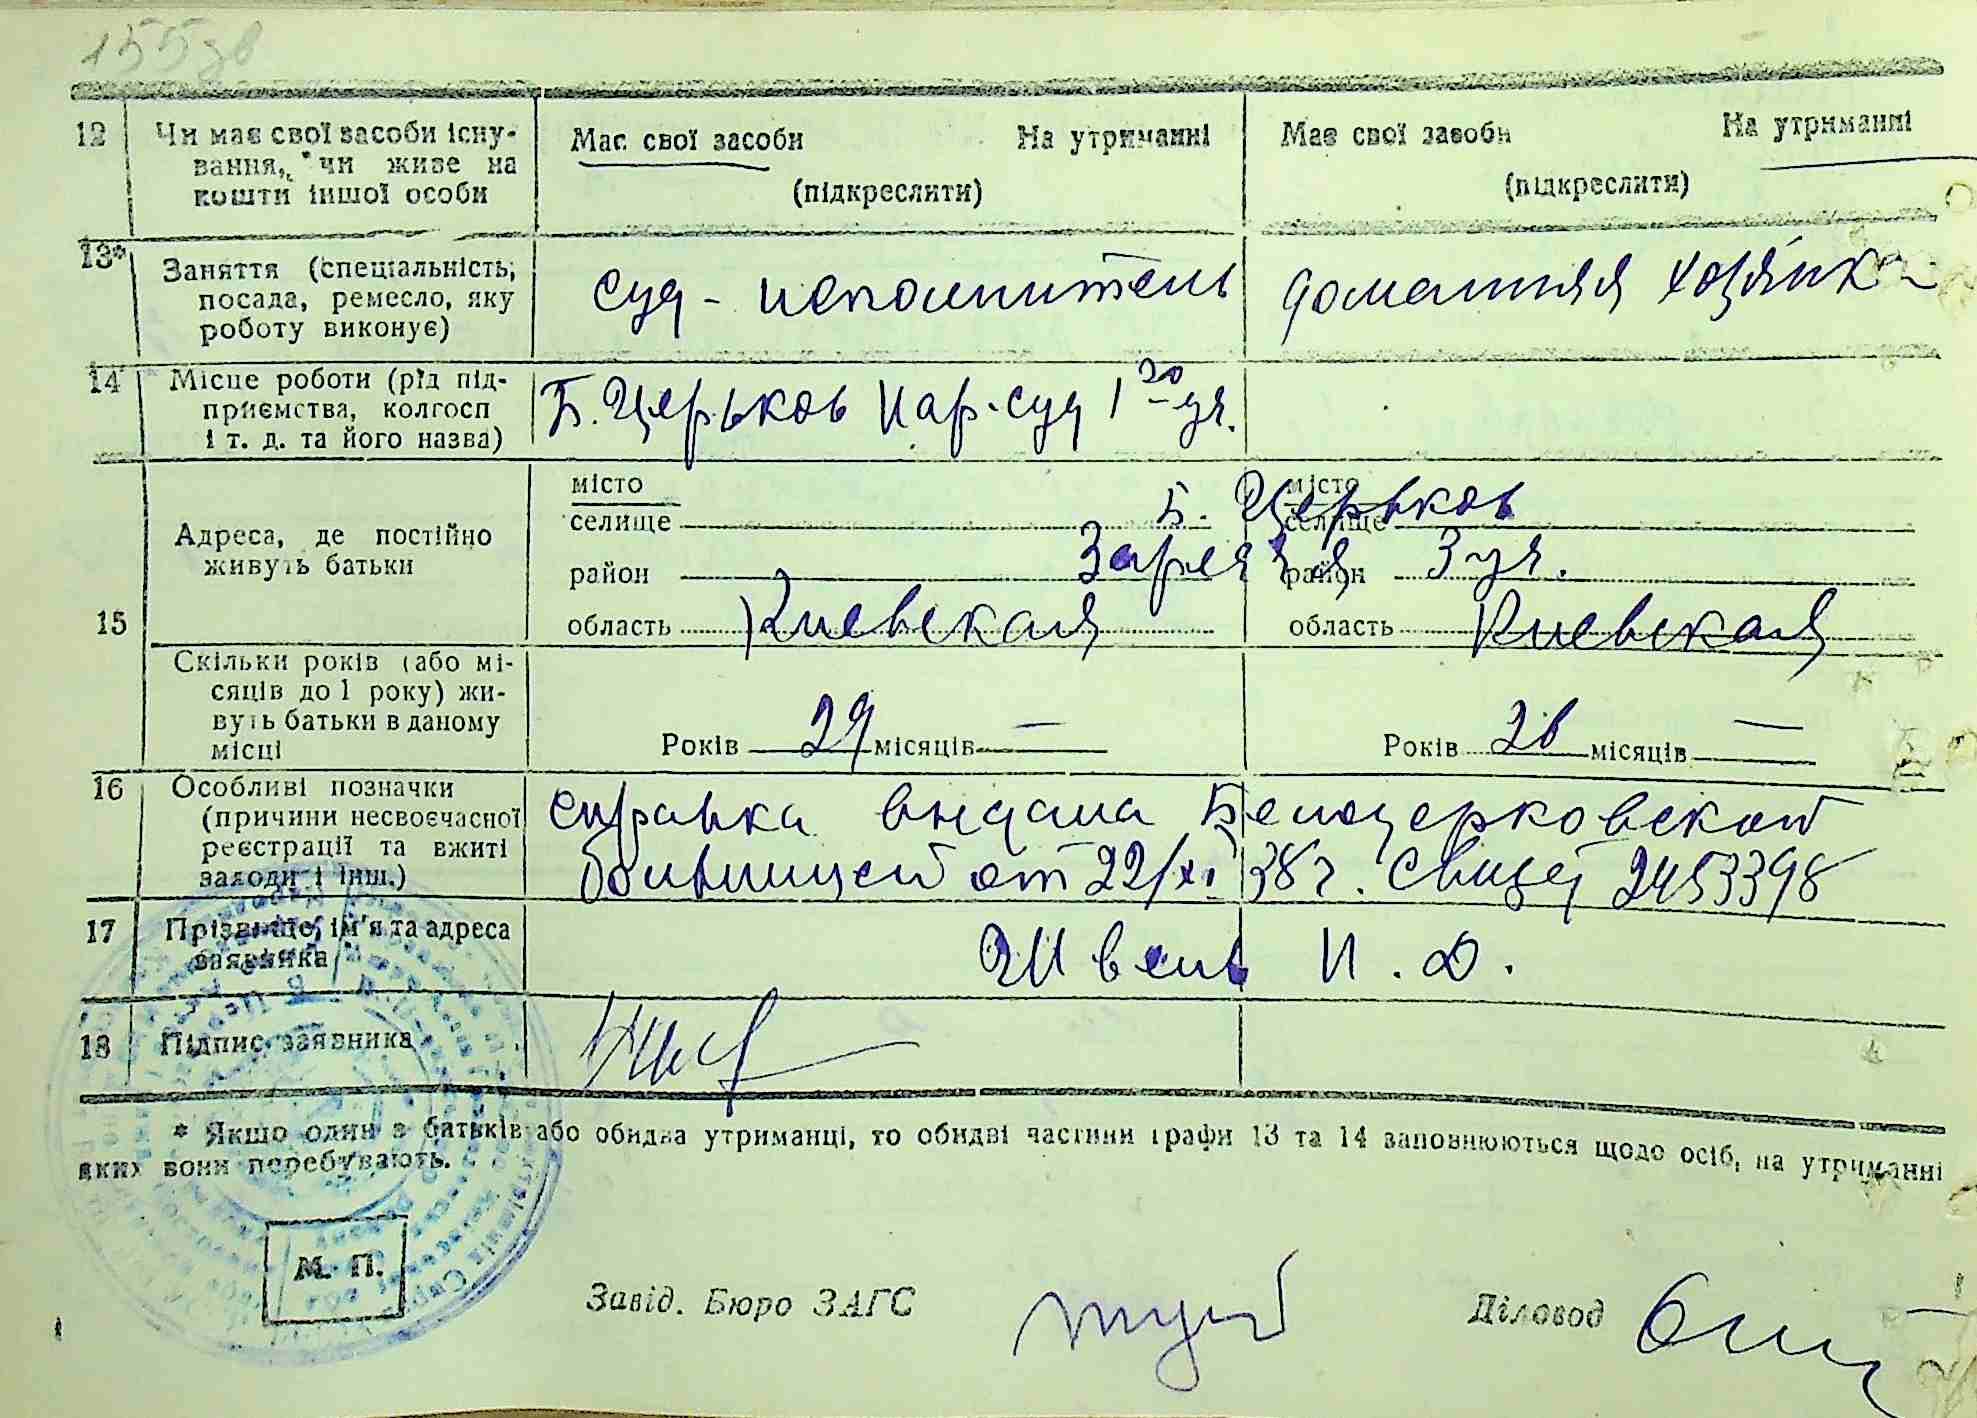 155зв
12 Чи має свої засоби існу-
вання, чи живе на
кошти іншої особи
Має свої засоби На утриманні
(підкреслити)
Має свої засоби На утриманні
(підкреслити)
13* Заняття (спеціальність,
посада, ремесло, яку
роботу виконує)
суд - исполнитель
домашняя хозяйка
14 Місце роботи (рід під-
приємства, колгосп
і т. д. та його назва)
Б. Церьков Нар. суд 1го уч.
15 Адреса, де постійно
живуть батьки
місто
селище
район
область Киевская
Б. Церьков
3 уч.
місто
селище
район
область Киевская
Скільки років (або мі-
сяців до 1 року) жи-
вуть батьки в даному
місці
Років 29 місяців —
Років 26 місяців —
16 Особливі позначки
(причини несвоєчасної
реєстрації та вжиті
заходи і інш.)
справка выдана Белоцерковской
больницей от 22/XI 38 г. Свидет 2453398
17 Прізвище, ім'я та адреса
заявника
И. Д.
18 Підпис заявника
* Якщо один з батьків або обидва утриманці, то обидві частини графи 13 та 14 заповнюються щодо осіб, на утриманні
яких вони перебувають.
М. П.
Завід. Бюро ЗАГС
Діловод